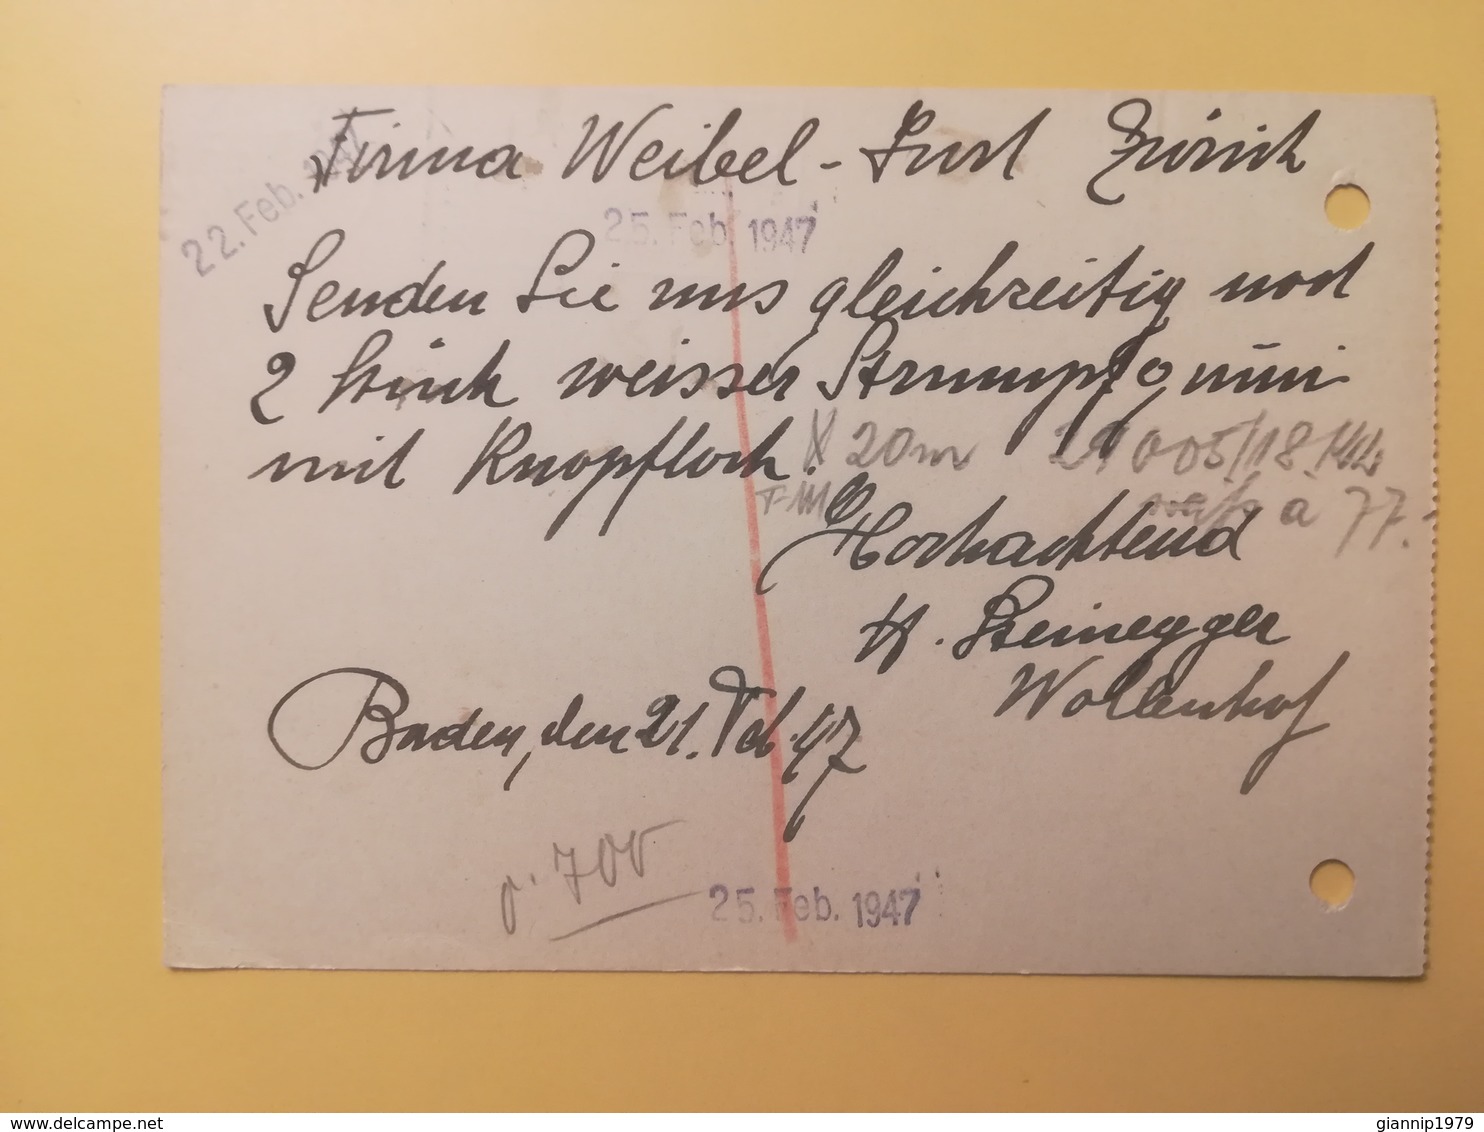 Firma Weibel - Hurst Zürich
22. Feb. 1947
25. Feb. 1947
Senden Sie uns gleichzeitig noch
2 Stück weisser Strumpfgummi
mit Knopfloch.
20 m 29005/18
à 77.-
Hochachtend
H. Steinegger
Wollenhof
Baden, den 21. Feb. 47
700
25. Feb. 1947
delcampe.net
giannip1979